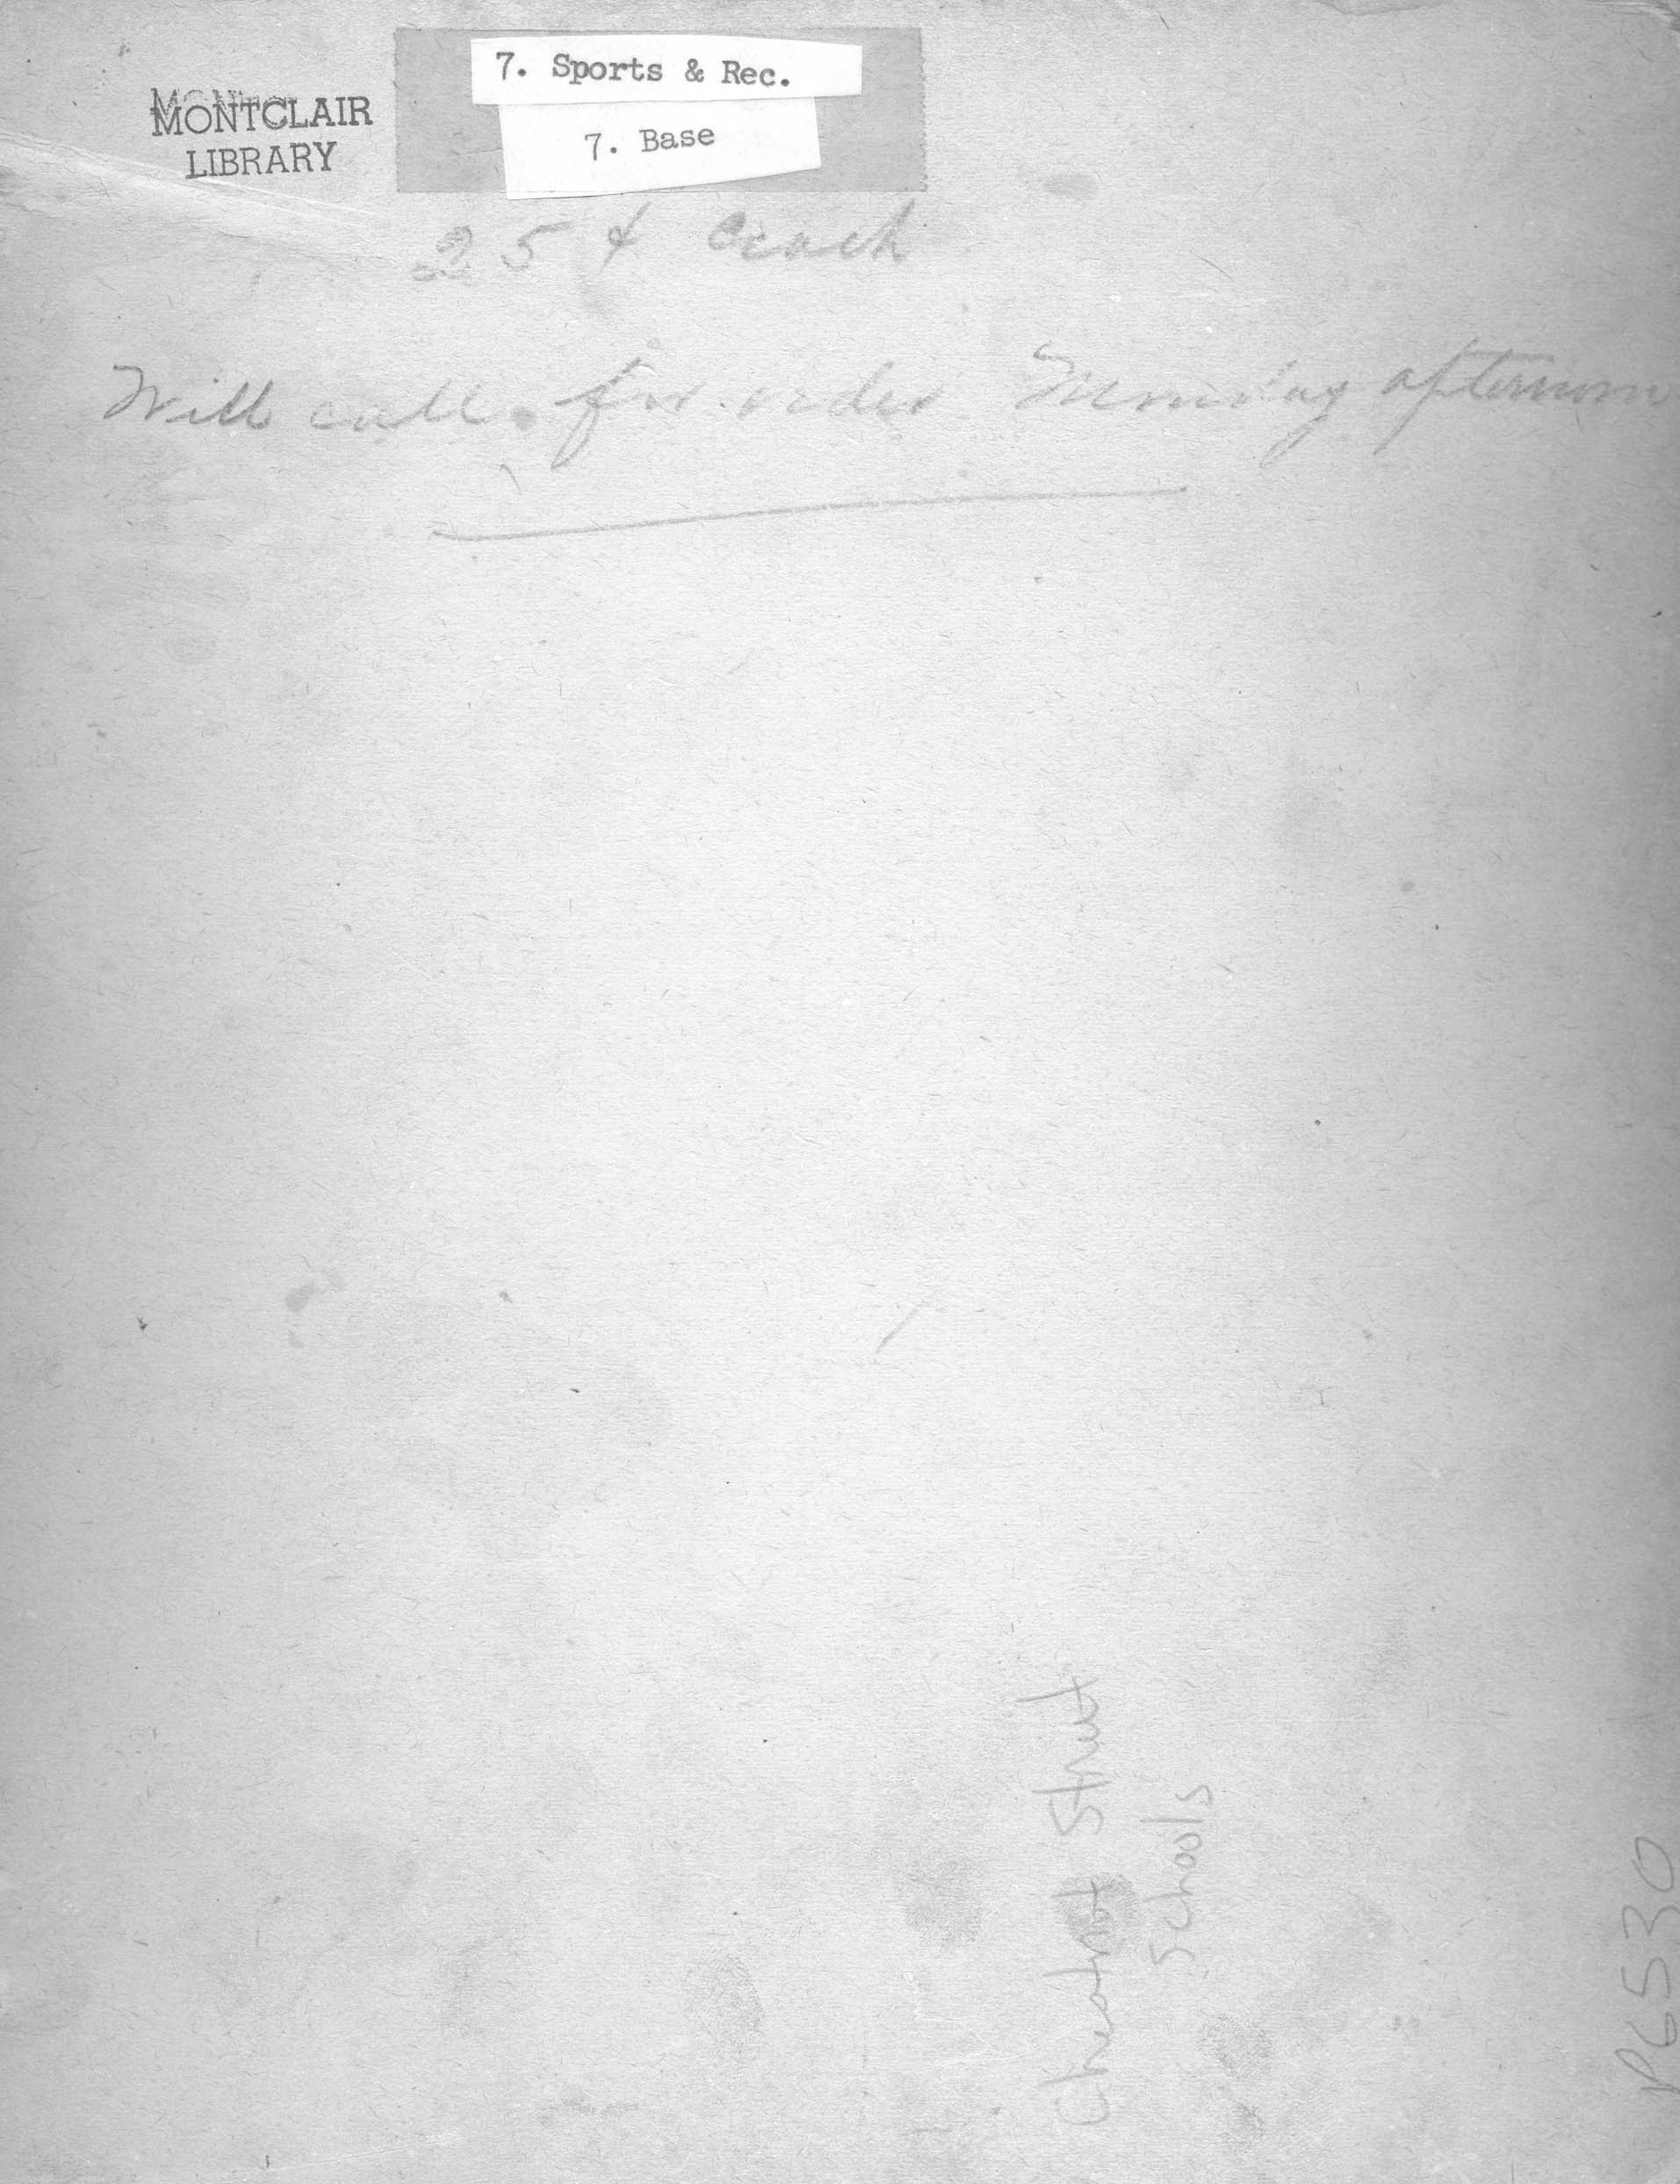 7. Sports & Rec.
7. Base
MONTCLAIR
LIBRARY
25 ¢ each
Will call for order Monday afternoon
Chestnut Street
Schools
P6530